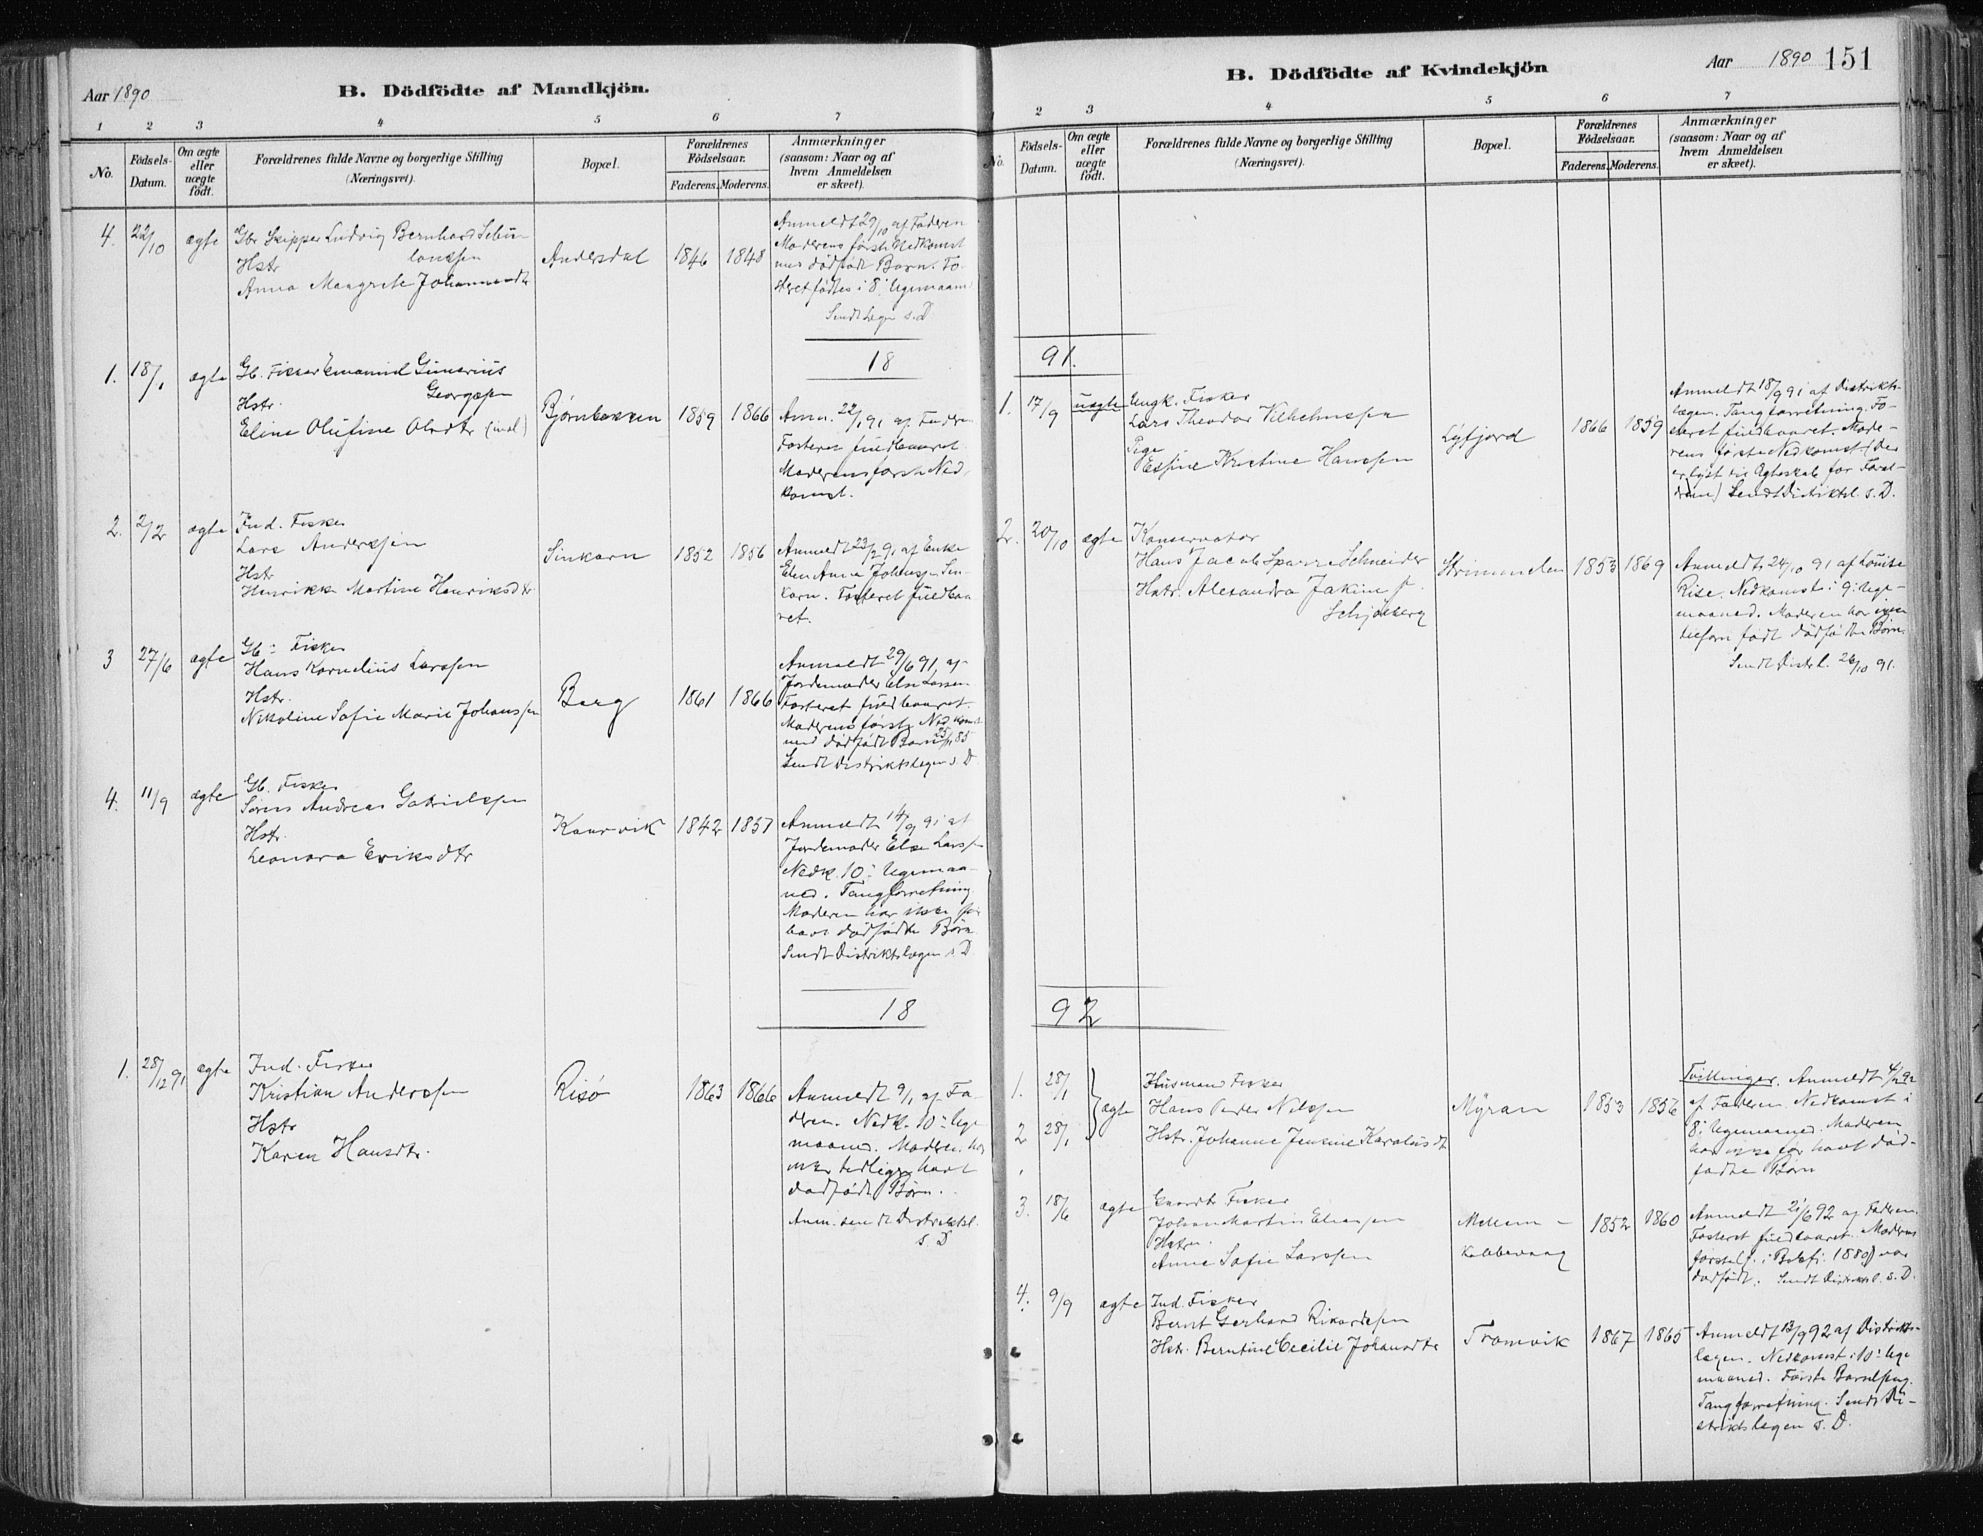 Aar 1890
B. Dödfödte af Mandkjön.
1 2 3 4 5 6 7
No.
Födsels-
Datum.
Om ægte
eller
uægte
födt.
Forældrenes fulde Navne og borgerlige Stilling
(Næringsvei).
Bopæl.
Forældrenes
Födselsaar.
Faderens. Moderens.
Anmærkninger
(saasom: Naar og af
hvem Anmeldelsen
er skeet).
4. 22/10 ægte
Gbr Skipper Ludvig Bernhard
Hstr
Anna Margrete Johannesdtr
Andersdal 1846 1848
Anmeldt 29/10 af Faderen
Moderens første Nedkomst
med dødfødt Barn. Fo-
steret fødtes i 8: Ugemaan
Sendt Lægen s.D
18
1. 18/1 ægte
Gb. Fisker Emanuel Gunerius
Georgsen
Hstr.
Eline Olufine Olsdtr
Bjørnbakken 1859 1866
Anm. 22/1 91 af Faderen
Fosteret fuldbaaret
Moderens første Ned-
komst.
2. 2/2 ægte
Ind. Fisker
Lars Anderssen
Hstr
Henrikke Martine Henriksdtr
Sinkarn 1852 1856
Anmeldt 23/2 91 af Enke
Elen Anna Johansen Sin-
karn. Fosteret fuldbaa-
ret.
3 27/6 ægte
Gb: Fisker
Hans Kornelius Larssen
Hstr.
Nikoline Sofie Marie Johanssen
Berg 1861 1866
Anmeldt 29/6 91, af
Jordemoder Else Larsen
Fosteret fuldbaaret.
Moderens første Nedkomst
med dødfødt Barn 85
Sendt Distriktslægen s. D
4. 11/9 ægte
Gb. Fisker
Søren Andreas Gabrielsen
Hstr.
Leonora Eriksdtr
Kaarvik 1842 1857
Anmeldt 14/9 91 af
Jordemoder Else Larssen
Nedk. 10: Ugemaa-
ned. Tangforretning
Moderen har ikke før
havt dødfødte Børn
Sendt Distriktslægen s. D
18
1. 28/12 91 ægte
Ind. Fisker
Kristian Anderssen
Hstr
Karen Hansdtr.
Risø 1863 1866
Anmeldt 9/1 af Fa-
deren. Nedk. 10: Uge-
maaned. Moderen har
ikke tidligere havt
dødfødt Børn.
Anm. sendt Distriktsl.
s. D
B. Dödfödte af Kvindekjön
Aar 1890 151
2 3 4 5 6 7
No.
Födsels-
Datum.
Om ægte
eller
uægte
födt.
Forældrenes fulde Navne og borgerlige Stilling
(Næringsvei).
Bopæl.
Forældrenes
Födselsaar.
Faderens. Moderens.
Anmærkninger
(saasom: Naar og af
hvem Anmeldelsen
er skeet).
91.
1. 17/9 uægte
Ungk. Fisker
Lars Theodor Vilhelmssen
Pige
Essine Kristine Hanssen
Lyfjord 1866 1859
Anmeldt 18/9 91 af Distrikts-
lægen. Tangforretning. Fo-
steret fuldbaaret. Mode-
rens første Nedkomst (Der
er lyst til Ægteskab for Foræl-
drene) Sendt Distriktsl. s. D.
2. 20/10 ægte
Konservator
Hans Jacob Sparre Schneider
Hstr. Alexandra Jakime f.
Schjølberg
Strimmelen 1853 1869
Anmeldt 24/10 91 af Louise
Rise. Nedkomst i 9: Uge-
maaned. Moderen har ingen
tilforn født dødfødte Børn.
Sendt Distr.l. 26/10 91.
92
1. 28/1
2 28/1
ægte
Husmand Fisker
Hans Peder Nilssen
Hstr. Johanne Jensine Karolusdt
Myran 1853 1856
Tvillinger. Anmeldt 4/2 92
af Faderen. Nedkomst i
8: Ugemaaned. Moderen
har ikke før havt død-
fødte Børn
3. 18/6 ægte
Gaardbr Fisker
Johan Martin Eliassen
Hstru
Anne Sofie Larssen
Mellem-
Kobbevaag
1852 1860
Anmeldt 21/6 92 af Faderen.
Fosteret fuldbaaret. Moderens
første f. i Balsfj. 1880) var
dødfødt. Sendt Distriktsl. s. D.
4. 9/9 ægte
Ind. Fisker
Bernt Gerhard Rikardsen
Hstr. Berntine Cecilie Johansdtr
Tromvik 1867 1865
Anmeldt 13/9 92 af Distrikts-
lægen. Nedkomst i 10: Uge
maaned. Første Barnfseng.
Tangforretning. Sendt Di-
striktslægen s. D.